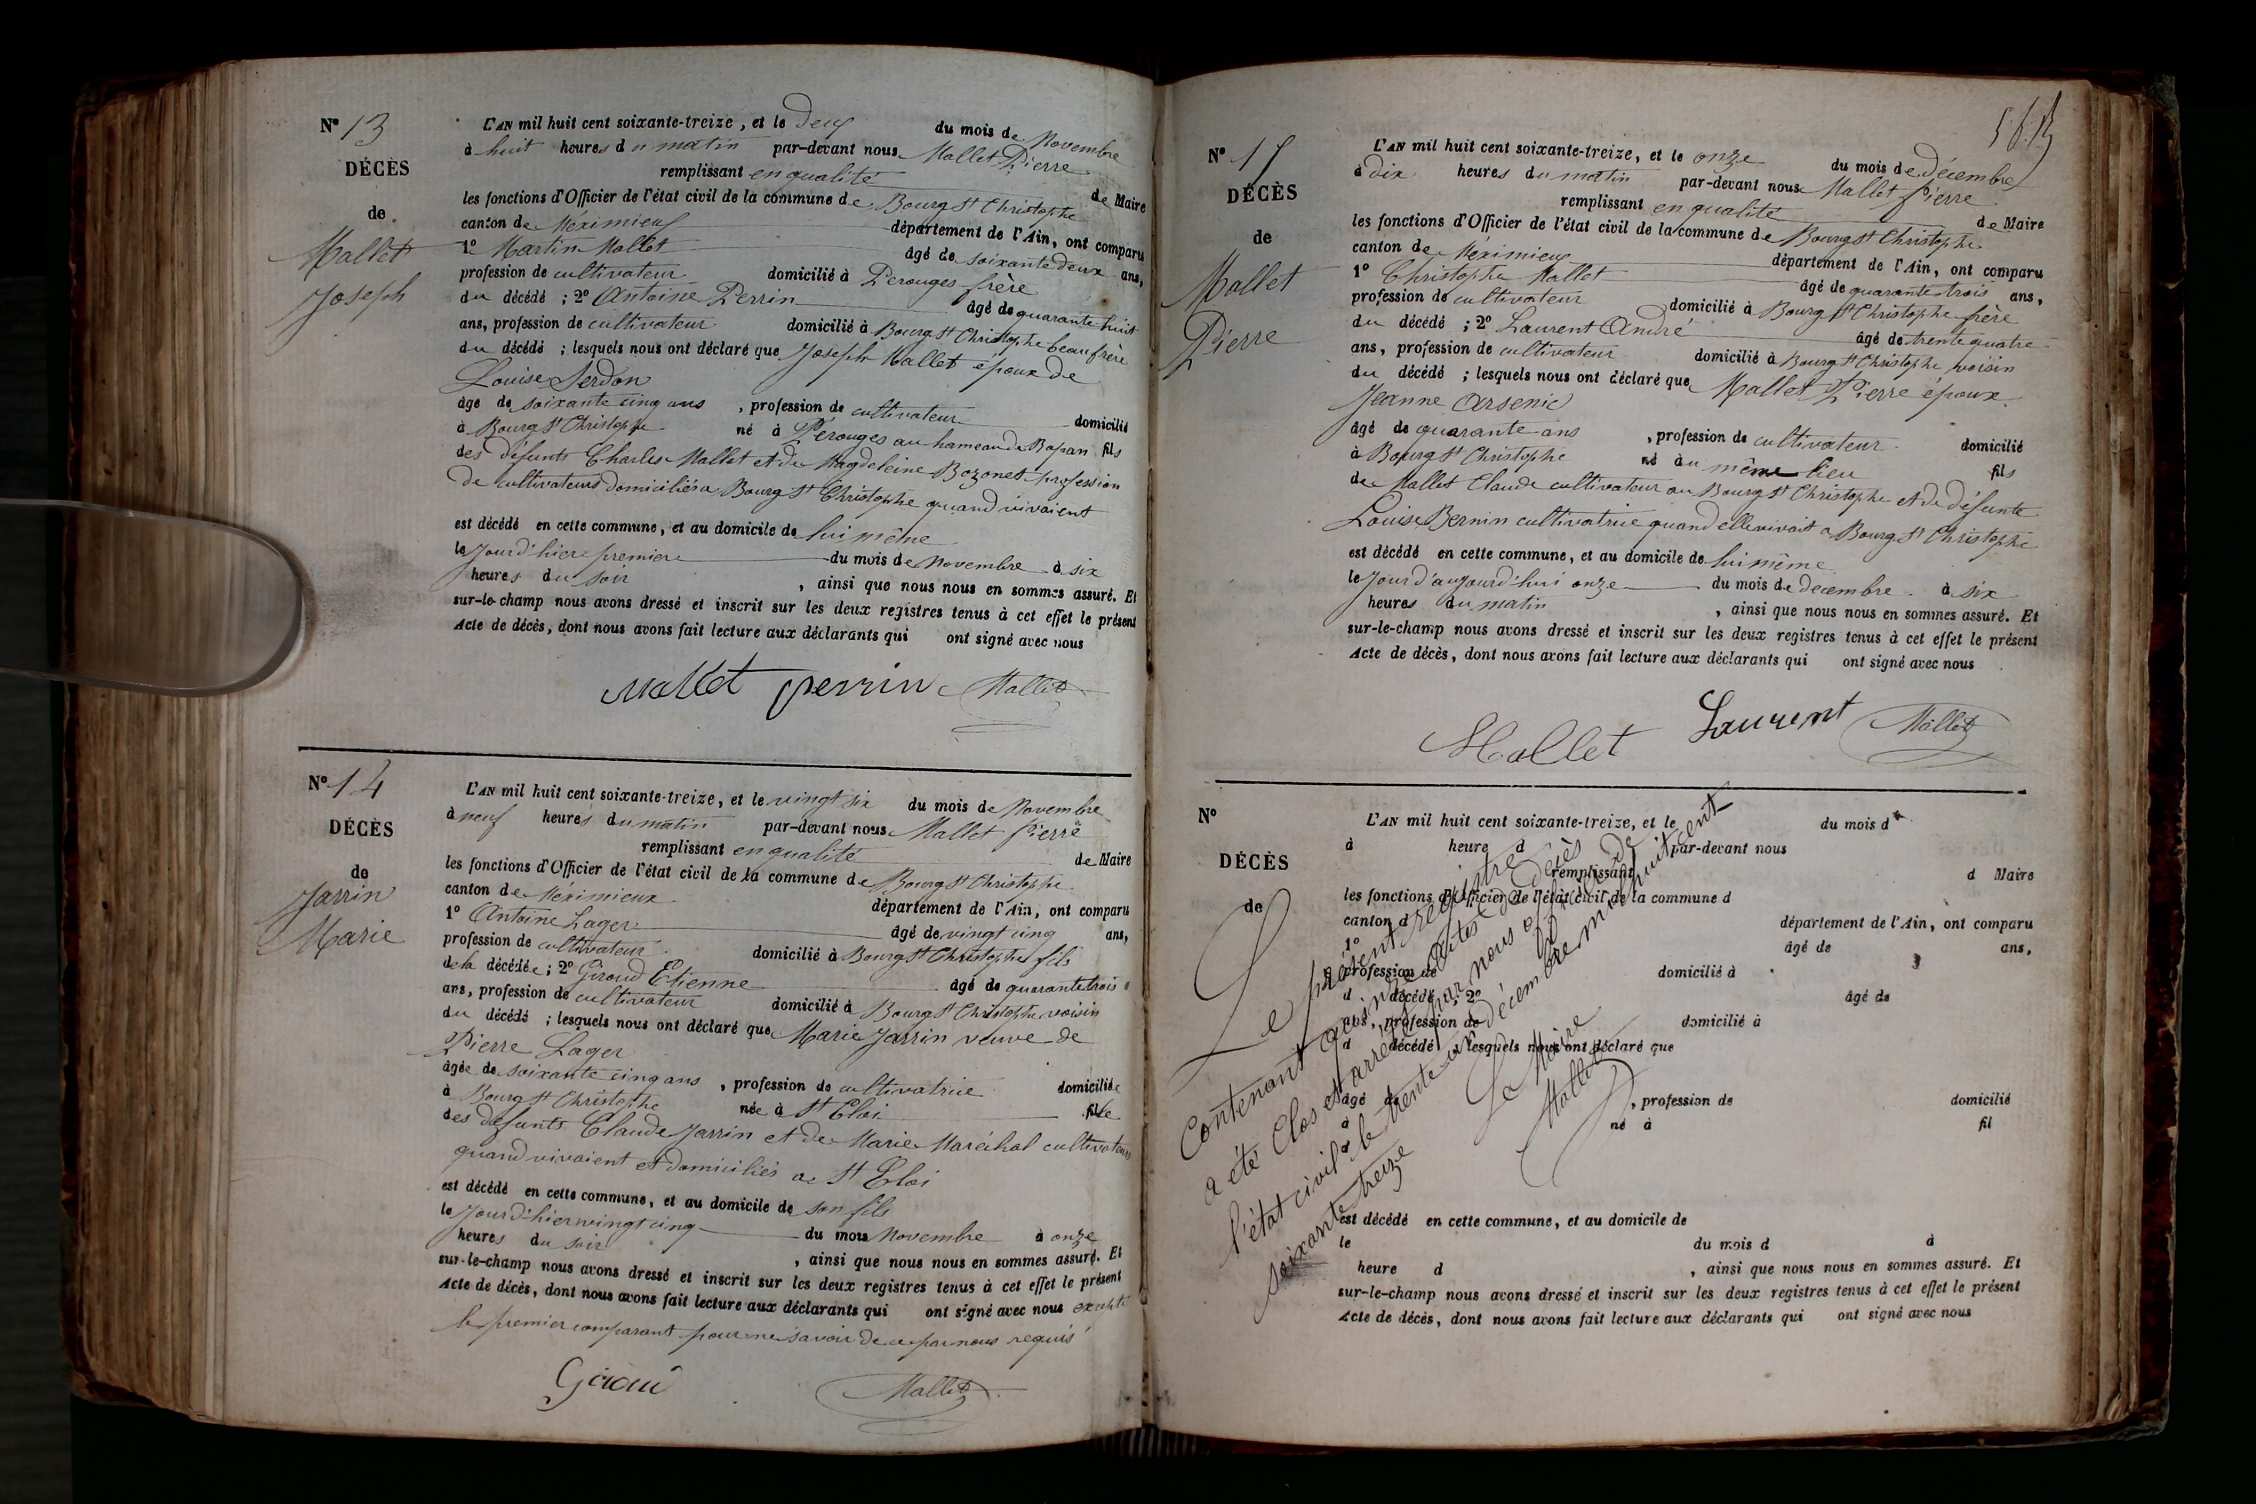 N° 13
DÉCÈS
de
Mallet
Joseph
L'AN mil huit cent soixante-treize, et le deux du mois de Novembre
à huit heures du matin par-devant nous Mallet Pierre
remplissant en qualité de Maire
les fonctions d'Officier de l'état civil de la commune de Bourg St Christophe
canton de Méximieux département de l'Ain, ont comparu
1° Martin Mallet âgé de soixante deux ans,
profession de cultivateur domicilié à Perouges frère
du décédé ; 2° Antoine Perrin âgé de quarante huit
ans, profession de cultivateur domicilié à Bourg St Christophe beau frère
du décédé ; lesquels nous ont déclaré que Joseph Mallet époux de
Louise Serdon
âgé de soixante cinq ans , profession de cultivateur domicilié
à Bourg St Christophe né à Pérouges au hameau de Rapan fils
des défunts Charles Mallet et de Magdeleine Bozonet profession
de cultivateurs domiciliés a Bourg St Christophe quand vivaient
est décédé en cette commune, et au domicile de lui même
le Jour d'hier premier du mois de Novembre à six
heures du soir , ainsi que nous nous en sommes assuré. Et
sur-le-champ nous avons dressé et inscrit sur les deux registres tenus à cet effet le présent
Acte de décès, dont nous avons fait lecture aux déclarants qui ont signé avec nous
Mallet perrin Mallet
N° 14
DÉCÈS
de
Jarrin
Marie
L'AN mil huit cent soixante-treize, et le vingt six du mois de Novembre
à neuf heures du matin par-devant nous Mallet Pierre
remplissant en qualité de Maire
les fonctions d'Officier de l'état civil de la commune de Bourg St Christophe
canton de Méximieux département de l'Ain, ont comparu
1° Antoine Lager âgé de vingt cinq ans,
profession de cultivateur domicilié à Bourg St Christophe fils
de la décédée ; 2° Giroud Etienne âgé de quarante trois
ans, profession de cultivateur domicilié à Bourg St Christophe voisin
du décédé ; lesquels nous ont déclaré que Marie Jarrin veuve de
Pierre Lager
âgée de soixante cinq ans , profession de cultivatrice domiciliée
à Bourg St Christophe née à St Eloi fille
des défunts Claude Jarrin et de Marie Maréchal cultivateurs
quand vivaient et domiciliés a St Eloi
est décédé en cette commune, et au domicile de son fils
le Jour d'hier vingt cinq du mois Novembre à onze
heures du soir , ainsi que nous nous en sommes assuré. Et
sur-le-champ nous avons dressé et inscrit sur les deux registres tenus à cet effet le présent
Acte de décès, dont nous avons fait lecture aux déclarants qui ont signé avec nous excepté
le premier comparant pour ne savoir de ce par nous requis
Giroud Mallet
N° 15
DÉCÈS
de
Mallet
Pierre
L'AN mil huit cent soixante-treize, et le onze du mois de décembre
à dix heures du matin par-devant nous Mallet Pierre
remplissant en qualité de Maire
les fonctions d'Officier de l'état civil de la commune de Bourg St Christophe
canton de Méximieux département de l'Ain, ont comparu
1° Christophe Mallet âgé de quarante trois ans,
profession de cultivateur domicilié à Bourg St Christophe frère
du décédé ; 2° Laurent André âgé de trente quatre
ans, profession de cultivateur domicilié à Bourg St Christophe voisin
du décédé ; lesquels nous ont déclaré que Mallet Pierre époux
Jeanne Arsenic
âgé de quarante ans , profession de cultivateur domicilié
à Bourg St Christophe né au même lieu fils
de Mallet Claude cultivateur au Bourg St Christophe et de défunte
Louise Bernin cultivatrice quand elle vivait a Bourg St Christophe
est décédé en cette commune, et au domicile de lui même
le Jour d'aujourd'hui onze du mois de decembre à six
heures du matin , ainsi que nous nous en sommes assuré. Et
sur-le-champ nous avons dressé et inscrit sur les deux registres tenus à cet effet le présent
Acte de décès, dont nous avons fait lecture aux déclarants qui ont signé avec nous
Mallet Laurent Mallet
N°
DÉCÈS
de
L'AN mil huit cent soixante-treize, et le du mois d
à heure d par-devant nous
remplissant d Maire
les fonctions d'Officier de l'état civil de la commune d
canton d département de l'Ain, ont comparu
1° âgé de ans,
profession de domicilié à
d décédé ; 2° âgé de
ans, profession de domicilié à
d décédé ; lesquels nous ont déclaré que
âgé de , profession de domicilié
à né à fil
d
est décédé en cette commune, et au domicile de
le du mois d à
heure d , ainsi que nous nous en sommes assuré. Et
sur-le-champ nous avons dressé et inscrit sur les deux registres tenus à cet effet le présent
Acte de décès, dont nous avons fait lecture aux déclarants qui ont signé avec nous
Le présent registre
Contenant quinze actes de décès
a été Clos et arrêté par nous officier de
l'état civil le trente un décembre mil huit cent
soixante treize
Le Maire
Mallet